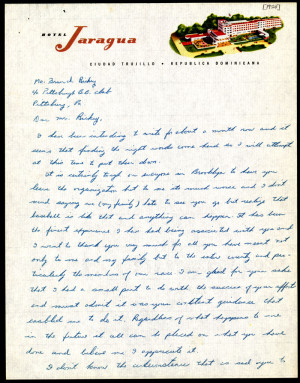 [1950]
HOTEL Jaragua
CIUDAD TRUJILLO • REPUBLICA DOMINICANA
Mr. Branch Rickey
% Pittsburgh B.B. Club
Pittsburg, Pa
Dear Mr. Rickey,
I have been intending to write for about a month now and it
seems that finding the right words come hard so I will attempt
at this time to put them down.
It is certainly tough on everyone in Brooklyn to have you
leave the organization but to me its much worse and I don't
mind saying we (my family) hate to see you go but realize that
baseball is like that and anything can happen. It has been
the finest experience I have had being associated with you and
I want to thank you very much for all you have meant not
only to me and my family but to the entire country and par-
ticularly the members of our race. I am glad for your sake
that I had a small part to do with the success of your efforts
and must admit it was your constant guidance that
enabled me to do it. Regardless of what happens to me
in the future it all can be placed on what you have
done and believe me I appreciate it.
I don't know the circumstances that caused you to